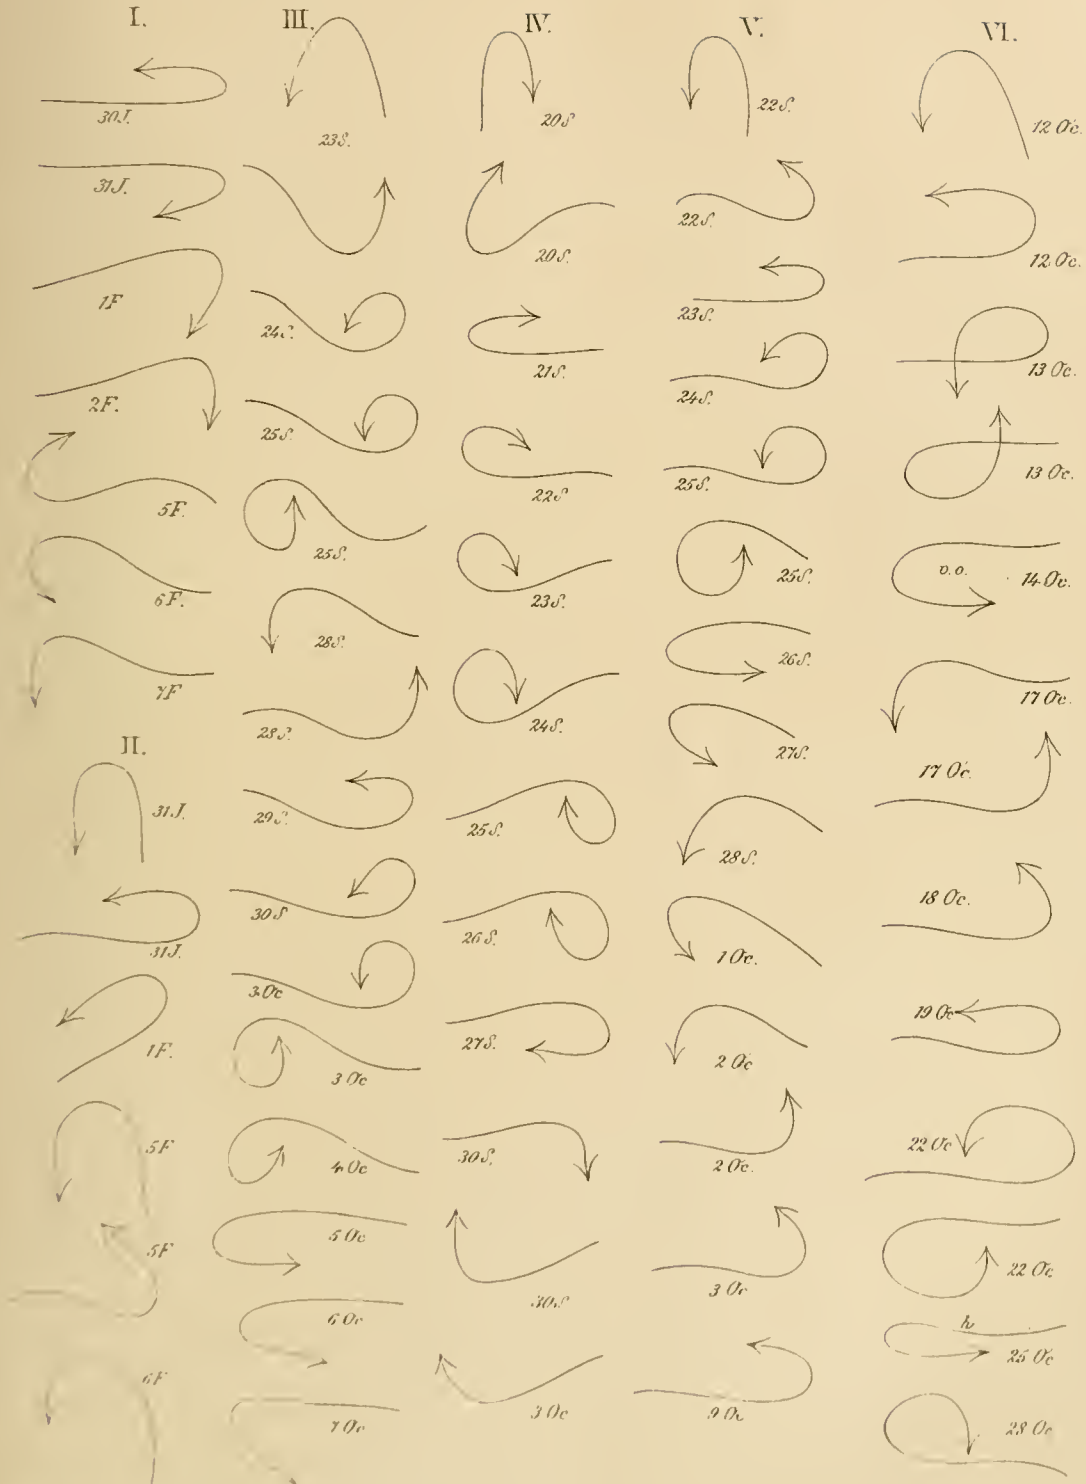 I.
30J.
31J.
1F
2F.
5F.
6F.
7F
II.
31J.
31J.
1F.
5F
5F
6F
III.
23S.
24S.
25S.
25S.
28S.
28S.
29S.
30S
3Oc
3Oc
4Oc
5Oc
6Oc
7Oc
IV.
20S
20S.
21S.
22S
23S.
24S.
25S.
26S.
27S.
30S.
30S
3Oc
V.
22S.
22S.
23S.
24S.
25S.
25S.
26S.
27S.
28S.
1Oc.
2Oc
2Oc.
3Oc
9Oc
VI.
12Oc.
12Oc.
13Oc.
13Oc.
v.o.
14Oc.
17Oc.
17Oc.
18Oc.
19Oc
22Oc
22Oc
h
25Oc
28Oc